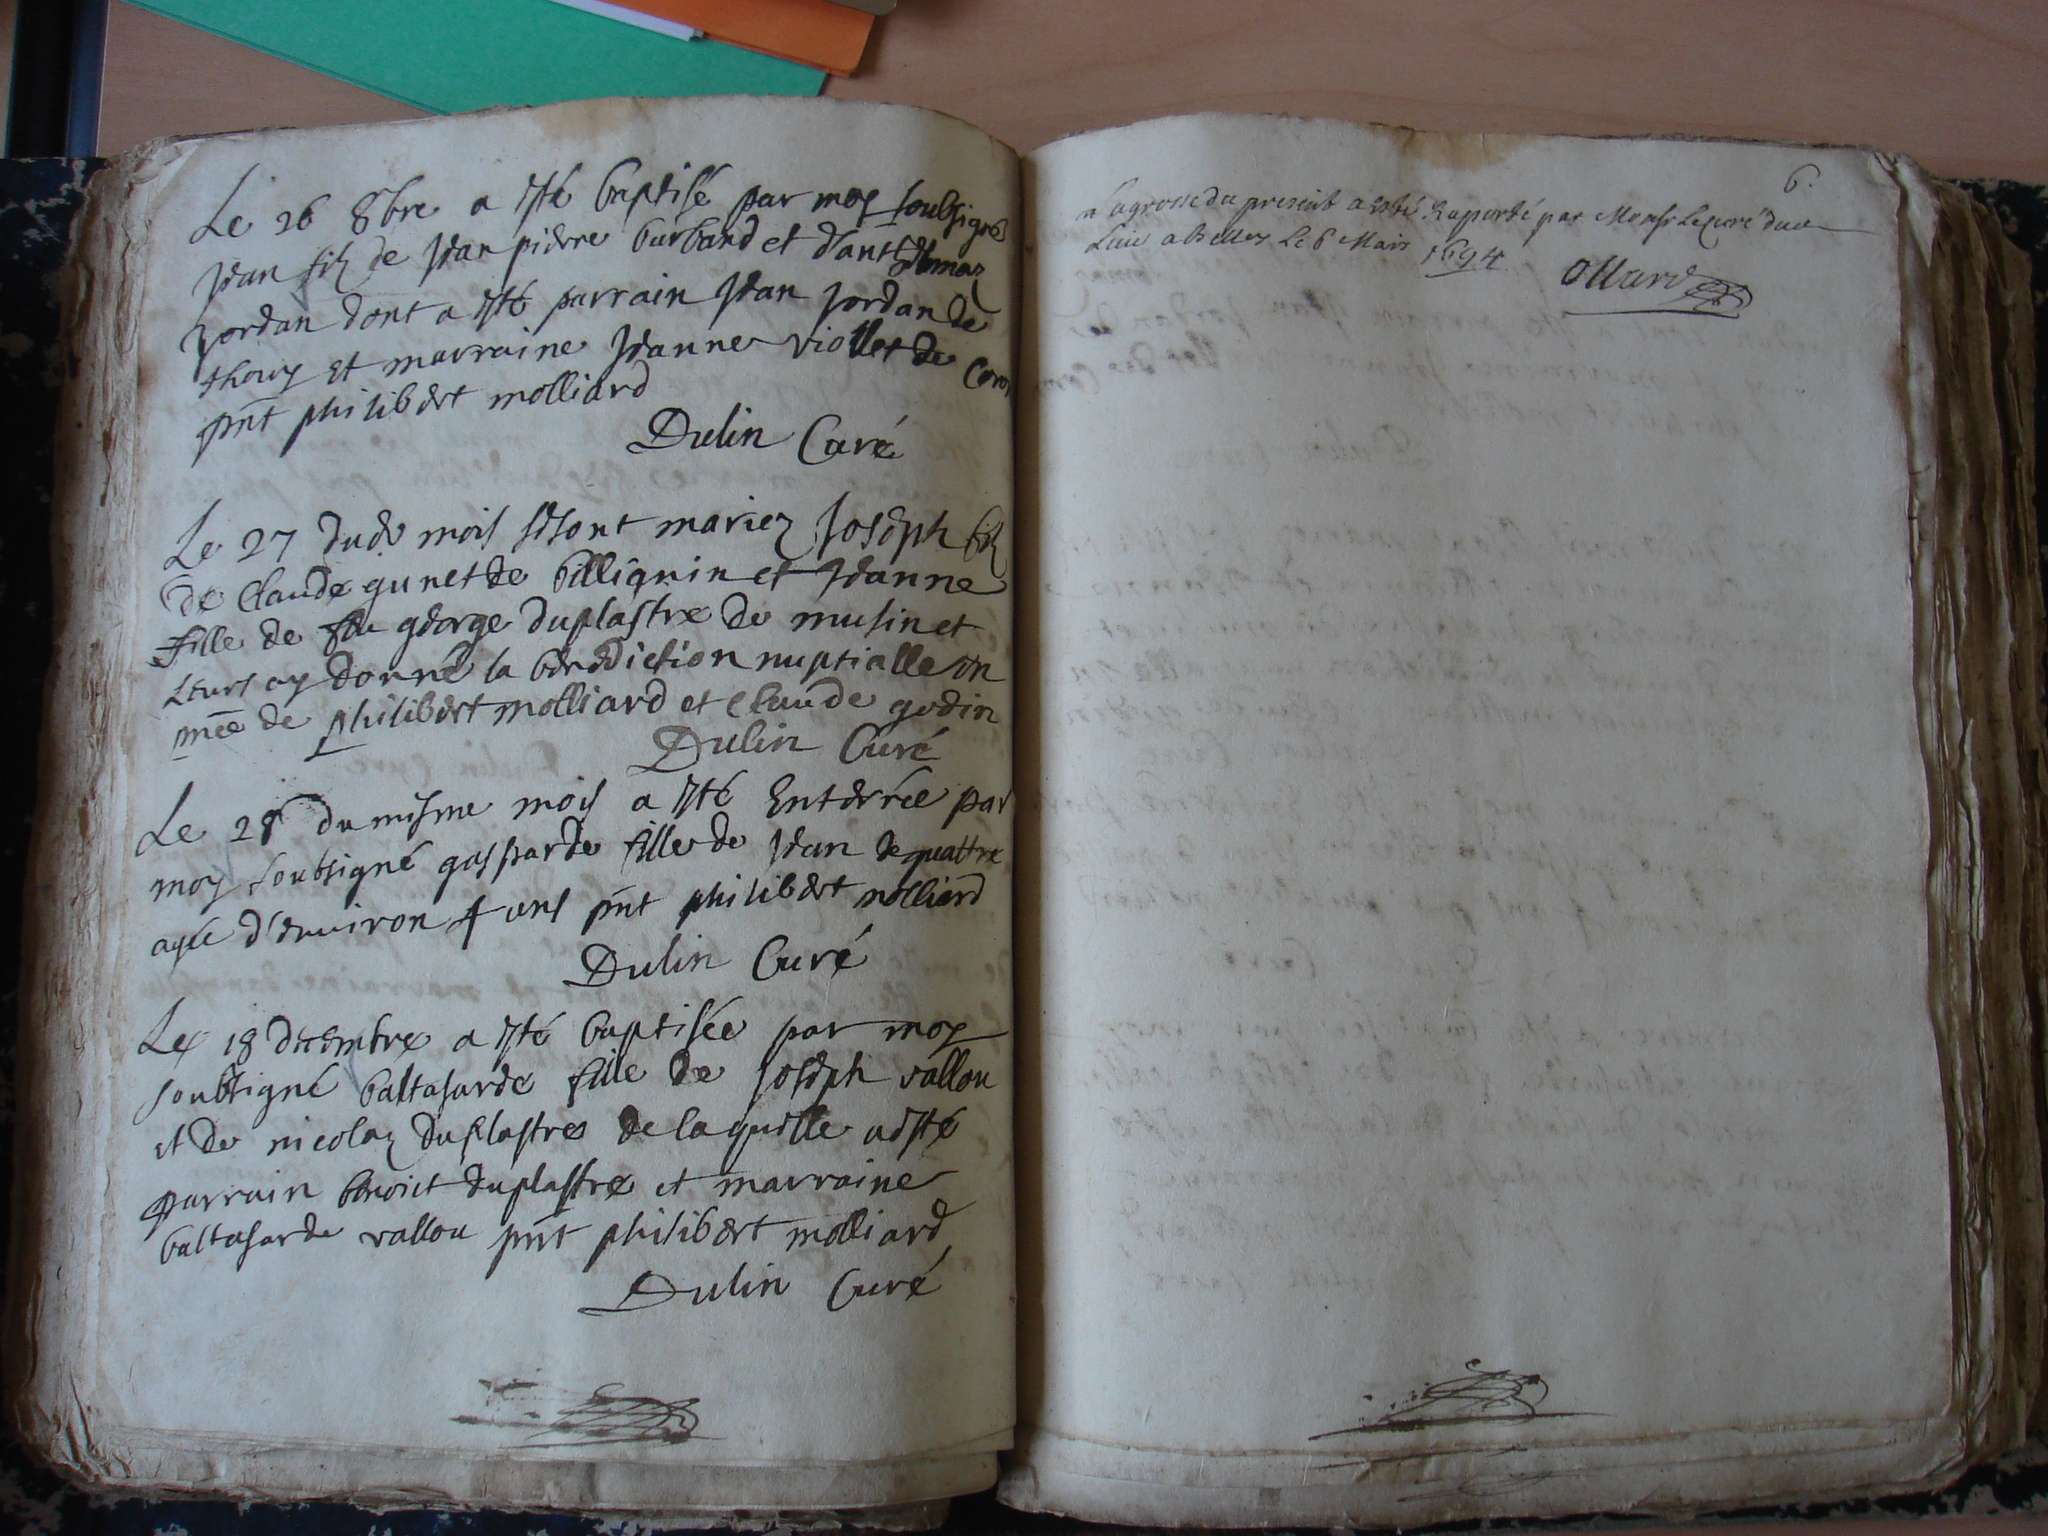 Le 26 8bre a esté baptisé par moy soubsigné
Jean filz de Jean pierre burband et d'anthelmaz
Jordan dont a esté parrain Jean Jordan de
thouy et marraine Jeanne viollet de
pnt philibert molliard
Dulin Curé
Le 27 dud mois se sont mariez Joseph filz
de Claude gunet de billignin et Jeanne
fille de feu george duplastre de musin et
leurs ay donné la benediction nuptialle en
pnce de philibert molliard et Claude godin
Dulin Curé
Le 28 du mesme mois a esté Enterrée par
moy soubsigné gasparde fille de Jean de quattre
agée d'environ 4 ans pnt philibert molliard
Dulin Curé
Le 18 decembre a esté baptisée par moy
soubsigné baltasarde fille de Joseph vallou
et de nicolaz duplastre de laquelle a esté
parrain benoict duplastre et marraine
baltasarde vallou pnt philibert molliard
Dulin Curé
6.
la grosse du present a esté Raporté par Monsr Le Curé dud
Lieu a Belley Le 6 Mars 1694
Ollard